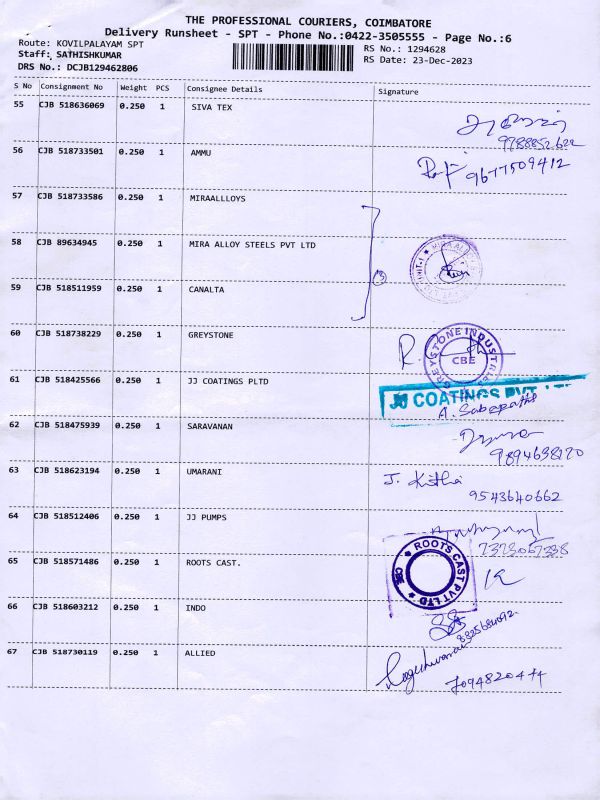 THE PROFESSIONAL COURIERS, COIMBATORE
Delivery Runsheet - SPT - Phone No.:0422-3505555 - Page No.:6
Route: KOVILPALAYAM SPT
RS No.: 1294628
Staff: SATHISHKUMAR
RS Date: 23-Dec-2023
DRS No.: DCJB129462806
S No Consignment No Weight PCS Consignee Details Signature
55 CJB 518636069 0.250 1 SIVA TEX
56 CJB 518733501 0.250 1 AMMU
9677509412
57 CJB 518733586 0.250 1 MIRAALLLOYS
58 CJB 89634945 0.250 1 MIRA ALLOY STEELS PVT LTD
59 CJB 518511959 0.250 1 CANALTA
60 CJB 518738229 0.250 1 GREYSTONE
GREYSTONE INDUSTRIES
CBE
61 CJB 518425566 0.250 1 JJ COATINGS PLTD
JJ COATINGS PVT. LTD
A. Sabapathi
62 CJB 518475939 0.250 1 SARAVANAN
63 CJB 518623194 0.250 1 UMARANI
9543640662
64 CJB 518512406 0.250 1 JJ PUMPS
65 CJB 518571486 0.250 1 ROOTS CAST.
ROOTS CAST PVT LTD
CBE
66 CJB 518603212 0.250 1 INDO
67 CJB 518730119 0.250 1 ALLIED